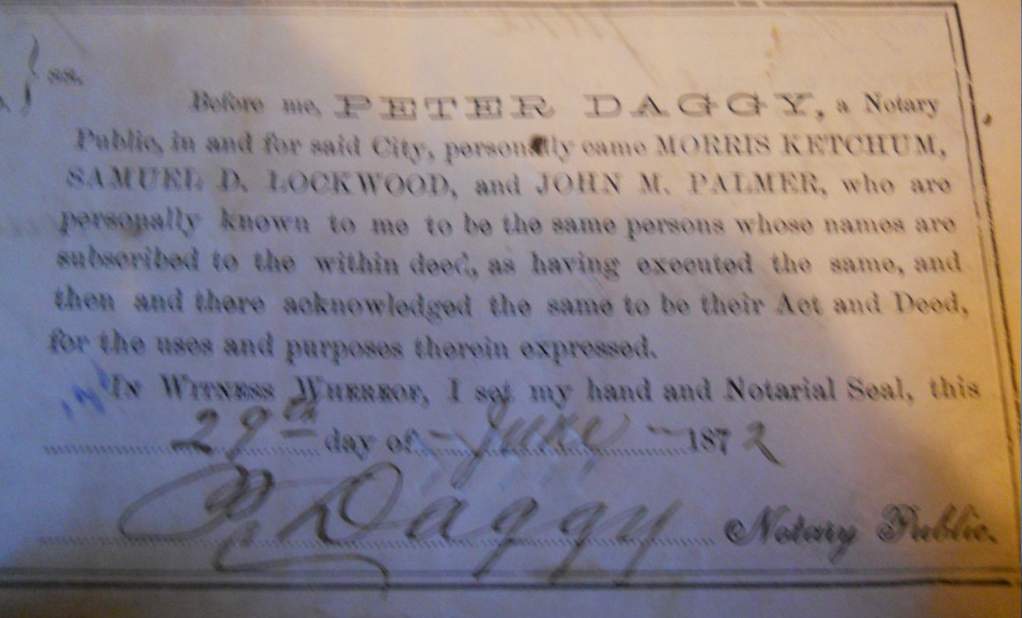 ss.
Before me, PETER DAGGY, a Notary
Public, in and for said City, personally came MORRIS KETCHUM,
SAMUEL D. LOCKWOOD, and JOHN M. PALMER, who are
personally known to me to be the same persons whose names are
subscribed to the within deed, as having executed the same, and
then and there acknowledged the same to be their Act and Deed,
for the uses and purposes therein expressed.
In Witness Whereof, I set my hand and Notarial Seal, this
29th day of June 1872
P. Daggy Notary Public.